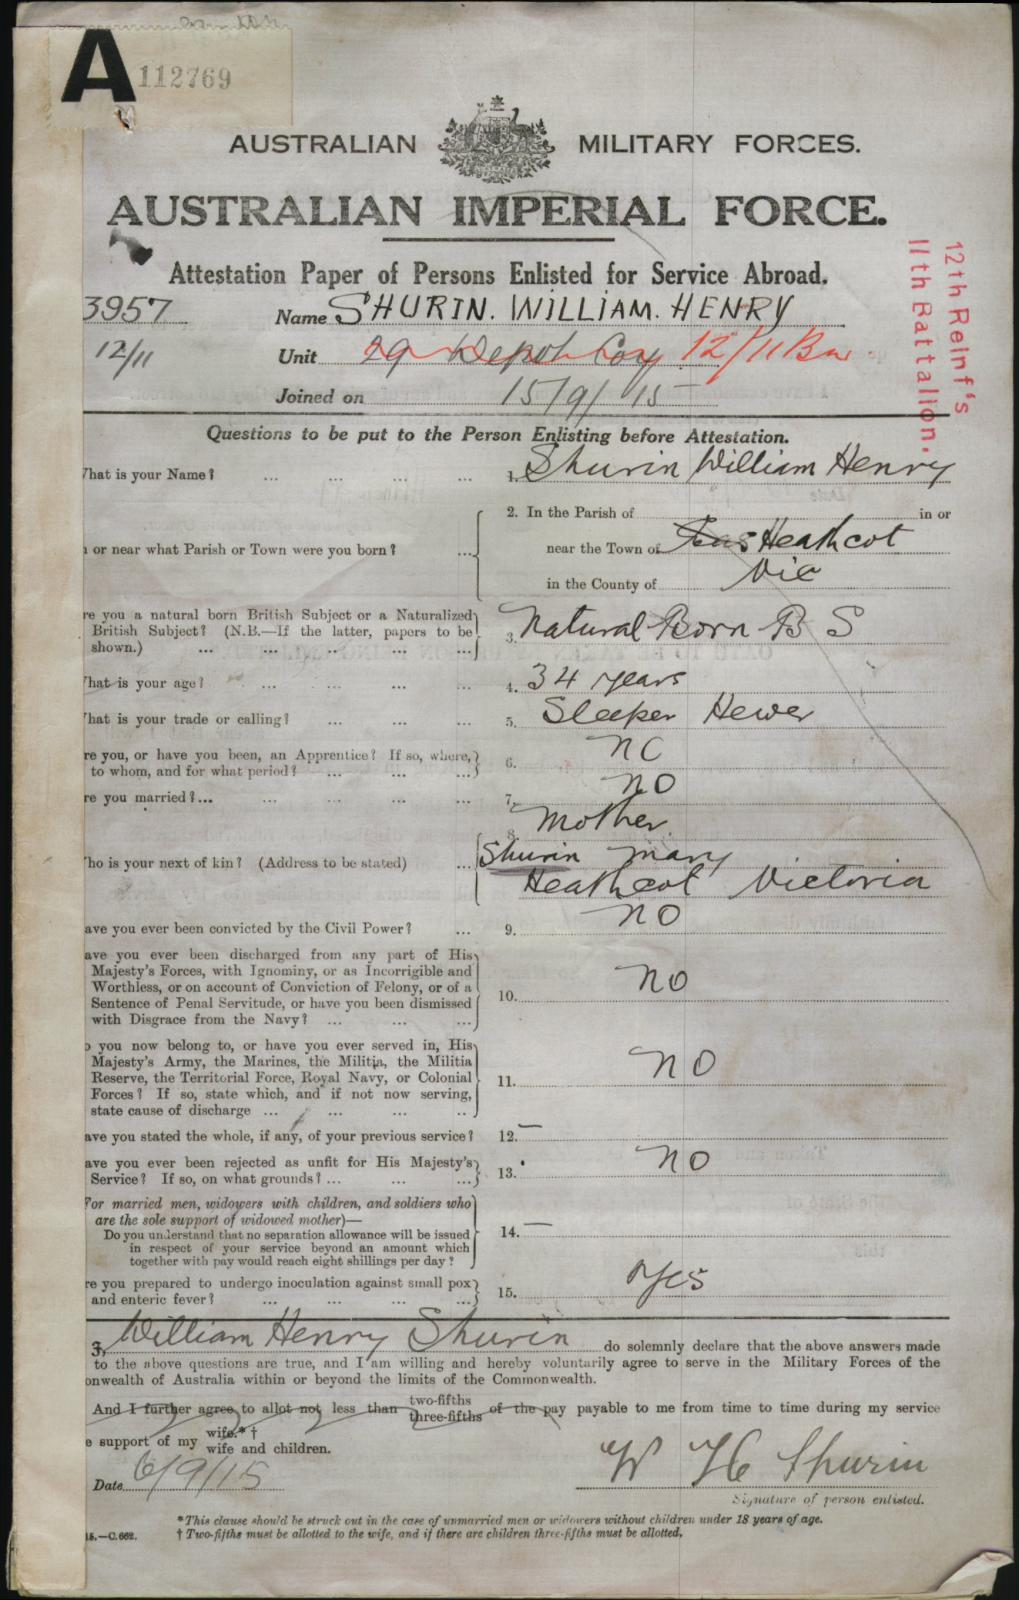 A 112769
AUSTRALIAN MILITARY FORCES.
AUSTRALIAN IMPERIAL FORCE.
12th Reinf's
11th Battalion.
Attestation Paper of Persons Enlisted for Service Abroad.
3957 Name SHURIN. WILLIAM. HENRY
12/11 Unit 29 Depot Coy 12/11 Bn
Joined on 15/9/15
Questions to be put to the Person Enlisting before Attestation.
hat is your Name? ... ... ... ... 1. Shurin William Henry
2. In the Parish of in or
or near what Parish or Town were you born? ... near the Town of Heathcot
in the County of Vic
re you a natural born British Subject or a Naturalized
British Subject? (N.B.—If the latter, papers to be 3. Natural Born B S
shown.) ... ... ... ... ...
hat is your age? ... ... ... ... 4. 34 years
hat is your trade or calling? ... ... ... 5. Sleeper Hewer
re you, or have you been, an Apprentice? If so, where, 6. NO
to whom, and for what period? ... ... ...
re you married?... ... ... ... ... 7. NO
8. Mother
ho is your next of kin? (Address to be stated) ... Shurin Mary
Heathcot Victoria
ave you ever been convicted by the Civil Power? ... 9. NO
ave you ever been discharged from any part of His
Majesty's Forces, with Ignominy, or as Incorrigible and
Worthless, or on account of Conviction of Felony, or of a 10. NO
Sentence of Penal Servitude, or have you been dismissed
with Disgrace from the Navy? ... ... ...
you now belong to, or have you ever served in, His
Majesty's Army, the Marines, the Militia, the Militia
Reserve, the Territorial Force, Royal Navy, or Colonial 11. NO
Forces? If so, state which, and if not now serving,
state cause of discharge ... ... ... ..
ave you stated the whole, if any, of your previous service? 12. —
ave you ever been rejected as unfit for His Majesty's 13. NO
Service? If so, on what grounds? ... ... ...
For married men, widowers with children, and soldiers who
are the sole support of widowed mother)—
Do you understand that no separation allowance will be issued 14. —
in respect of your service beyond an amount which
together with pay would reach eight shillings per day?
re you prepared to undergo inoculation against small pox 15. Yes
and enteric fever? ... ... ... ...
I, William Henry Shurin do solemnly declare that the above answers made
to the above questions are true, and I am willing and hereby voluntarily agree to serve in the Military Forces of the
onwealth of Australia within or beyond the limits of the Commonwealth.
And I further agree to allot not less than two-fifths three-fifths of the pay payable to me from time to time during my service
e support of my wife.*† wife and children.
Date 6/9/15 W H Shurin
Signature of person enlisted.
*This clause should be struck out in the case of unmarried men or widowers without children under 18 years of age.
15.—C.662. † Two-fifths must be allotted to the wife, and if there are children three-fifths must be allotted.